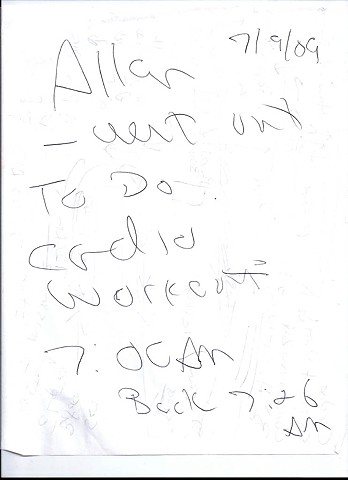 7/9/09
Allan
- went out
To Do
cardio
workout
7:00 AM
Back 7:26
AM